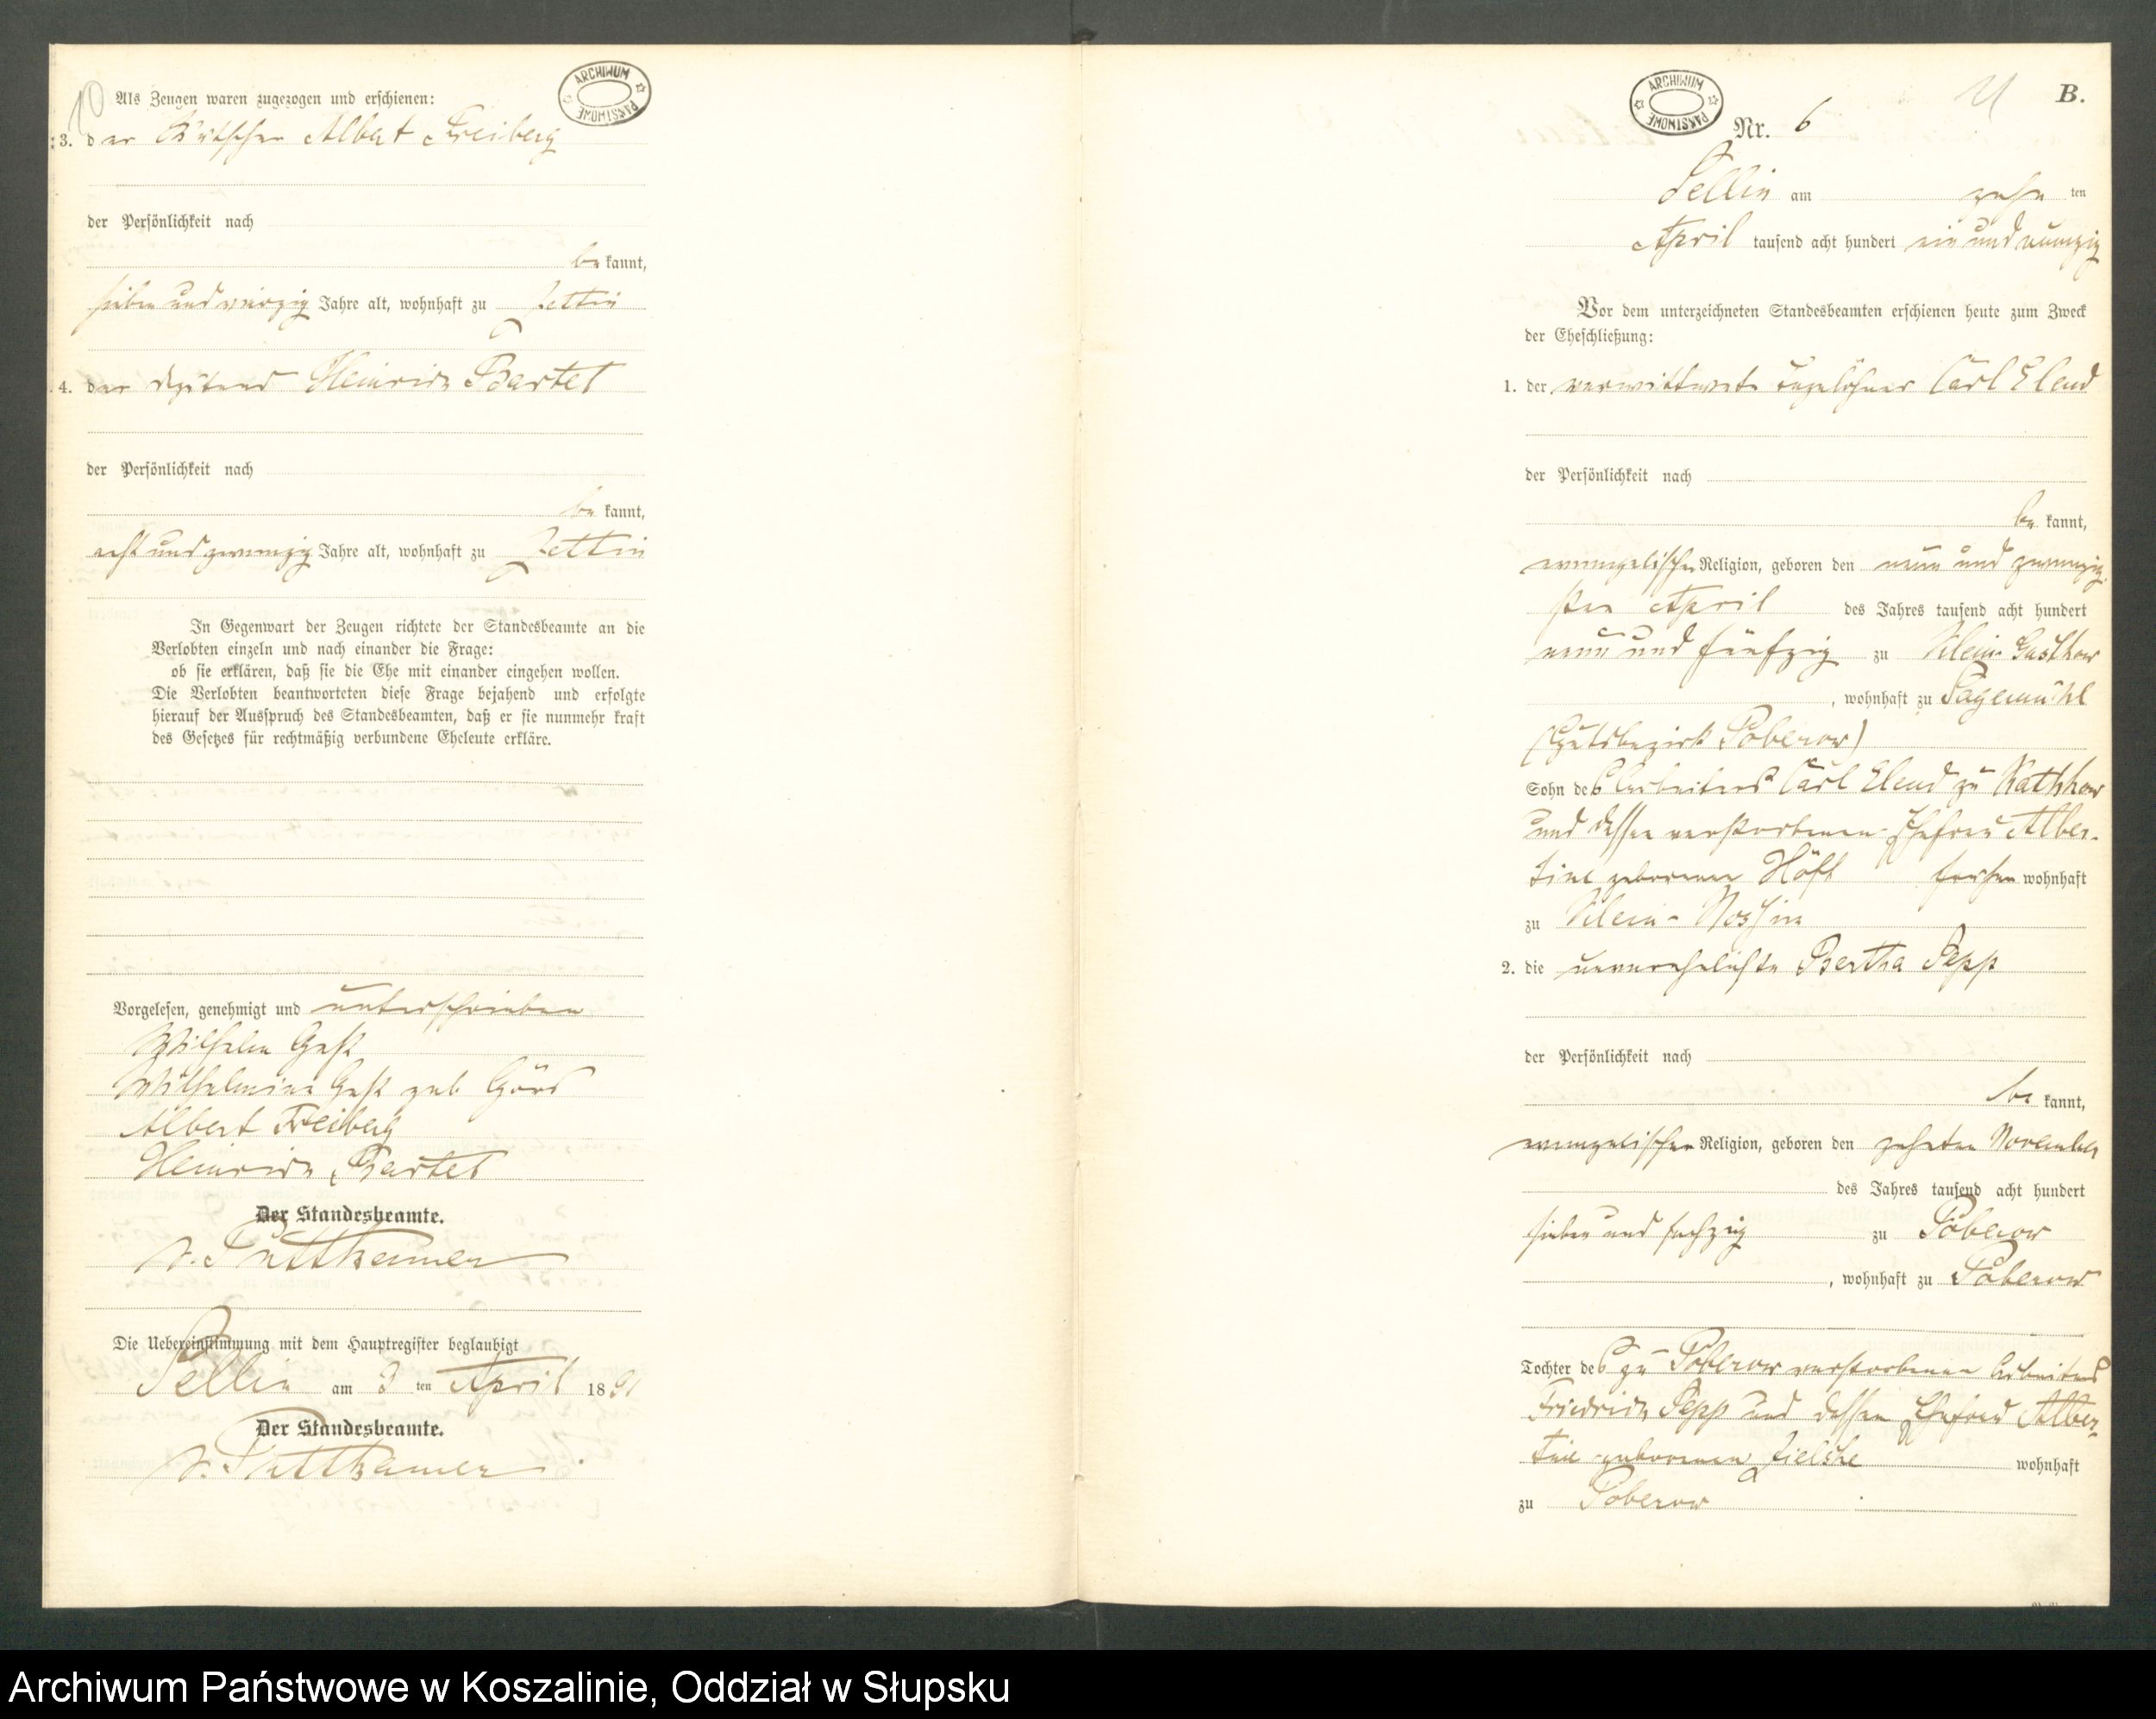 10
ARCHIWUM PAŃSTWOWE
Als Zeugen waren zugezogen und erschienen:
3. der Kutscher Albert Freiberg
der Persönlichkeit nach
be kannt,
sieben und vierzig Jahre alt, wohnhaft zu Zettin
4. der Deputant Heinrich Bartel
der Persönlichkeit nach
be kannt,
acht und zwanzig Jahre alt, wohnhaft zu Zettin
In Gegenwart der Zeugen richtete der Standesbeamte an die
Verlobten einzeln und nach einander die Frage:
ob sie erklären, daß sie die Ehe mit einander eingehen wollen.
Die Verlobten beantworteten diese Frage bejahend und erfolgte
hierauf der Ausspruch des Standesbeamten, daß er sie nunmehr kraft
des Gesetzes für rechtmäßig verbundene Eheleute erkläre.
Vorgelesen, genehmigt und unterschrieben
Wilhelm
Wilhelmine geb.
Albert Freiberg
Heinrich Bartel
Der Standesbeamte.
v. Puttkamer
Die Uebereinstimmung mit dem Hauptregister beglaubigt
Sellin am 3 ten April 1891
Der Standesbeamte.
v. Puttkamer.
ARCHIWUM PAŃSTWOWE
11
B.
Nr. 6
Sellin am zehn ten
April tausend acht hundert ein und neunzig
Vor dem unterzeichneten Standesbeamten erschienen heute zum Zweck
der Eheschließung:
1. der verwittwete Tagelöhner Carl Elend
der Persönlichkeit nach
be kannt,
evangelischer Religion, geboren den neun und zwanzig-
sten April des Jahres tausend acht hundert
neun und fünfzig zu Klein Gustkow
, wohnhaft zu Sagemühl
(Gutsbezirk Poberow)
Sohn des Arbeiters Carl Elend zu Kathkow
und dessen verstorbenen Ehefrau Alber-
tine geborenen Höft wohnhaft
zu Klein-Nossin
2. die unverehelichte Bertha Papp
der Persönlichkeit nach
be kannt,
evangelischer Religion, geboren den zehnten November
des Jahres tausend acht hundert
sieben und sechzig zu Poberow
, wohnhaft zu Poberow
Tochter des zu Poberow verstorbenen Arbeiters
Friedrich Papp und dessen Ehefrau Alber-
tine geborenen Zielske wohnhaft
zu Poberow
Archiwum Państwowe w Koszalinie, Oddział w Słupsku